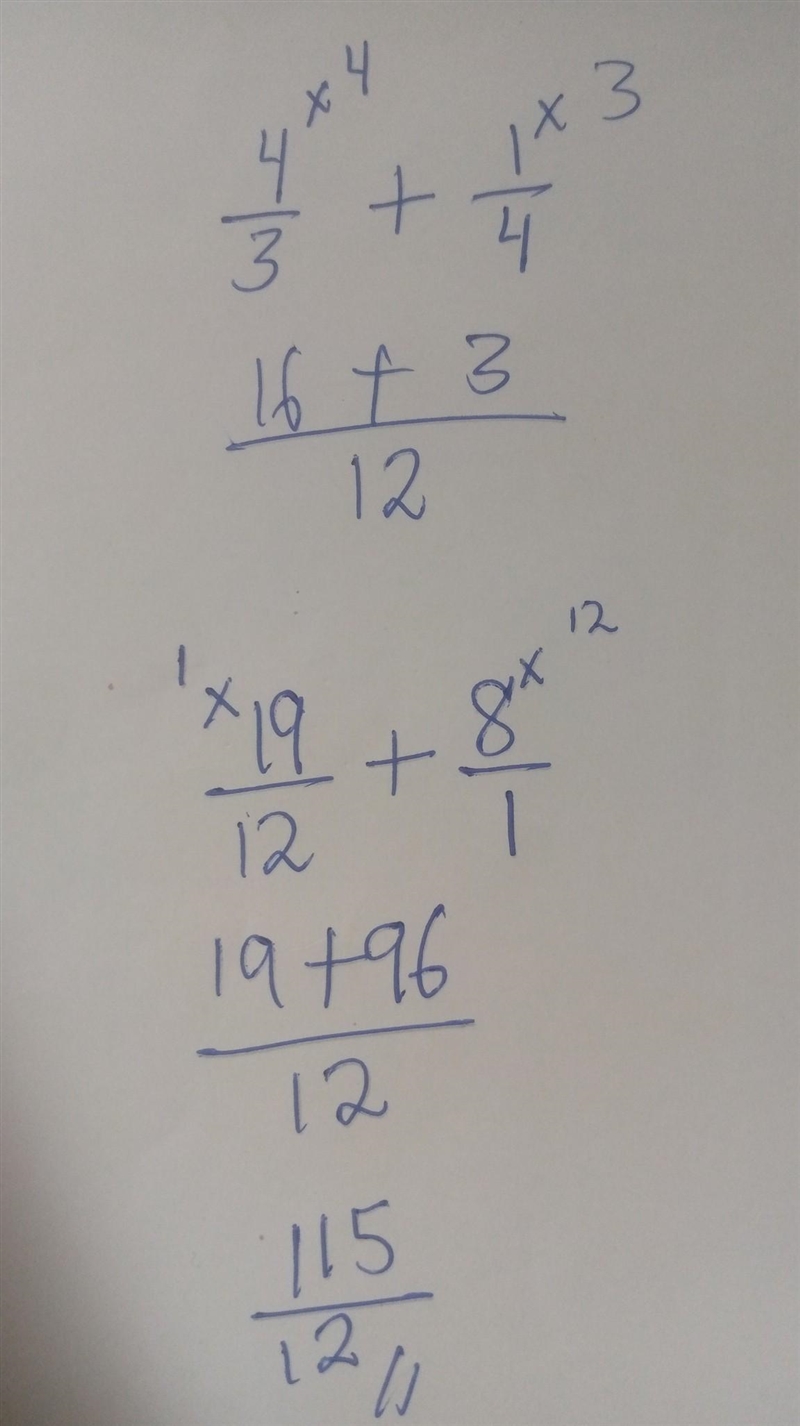 4/3 ×4 + 1/4 ×3
16 + 3
12
1× 19/12 + 8/1 ×12
19 + 96
12
115
12 //